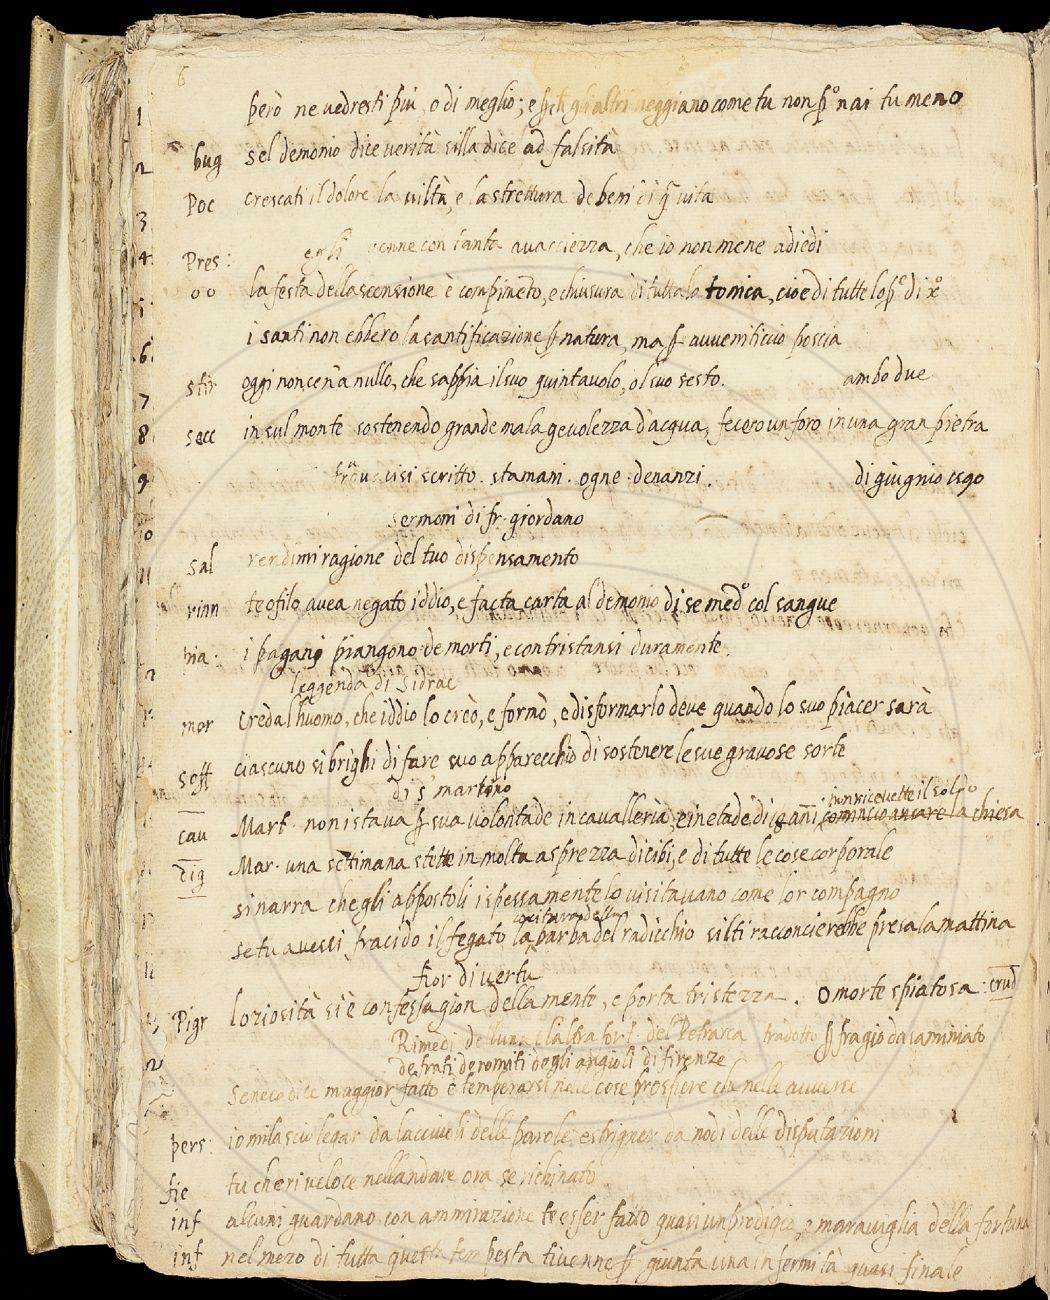 6
1 però ne vedresti più, o di meglio; e gli altri veggiano come tu non nai tu meno
2 bug sel demonio dice verità silla dice ad falsità
3 Poc crescati il dolore la viltà, e la strettura de beni di vita
4 Pres: egli venne con tanta avacciezza, che io non mene adiedi
5 oo la festa dellascensione è compimeto, e chiusura di tutta la tonica, cioe di tutte
6 i santi non ebbero la santificazione natura, ma avveniticcio poscia
7 stir oggi noncena nullo, che sappia il suo quintavolo, ol suo sesto. ambo due
8 secc in sul monte sostenendo grande malagevolezza dacqua, fecero un foro in una gran pietra
9 scritto. stamani. ogne. denanzi. di giugnio
10 sermoni di fr. giordano
11 sal rendimi ragione del tuo dispensamento
rinn teofilo avea negato iddio, e facta carta al demonio di se med.o col sangue
i pagani piangono de morti, e contristansi duramente.
leggenda di Sidrac
mor creda lhuomo, che iddio lo creò, e formò, e disformarlo deve quando lo suo piacer sarà
soff ciascuno si brighi di fare suo apparecchio di sostenere le sue gravose sorte
di s. martino
cav Mart. non istava sua volontade in cavalleria, e in etade di anni comincio la chiesa
Mar. una settimana stette in molta asprezza di cibi, e di tutte le cose corporale
si narra che gli appostoli ispessamente lo visitavano come lor compagno
se tu avessi fracido il fegato la barba del radicchio silti racconcierebbe presa la mattina
fior di vertu
Pigr loziosità si è confession della mente, e porta tristezza. O morte spiatosa: crud
Rimedi de luna e laltra del Petrarca fragio da samminiato
de frati deromiti degli angioli di firenze
Seneca dice maggior fatto è temperarsi nele cose prospere che nelle avverse
pers: io mi lascio legar da lacciuoli delle parole, e strigner da nodi delle disputazioni
fie tu cheri veloce nellandare ora se richinato
inf alcuni guardano con ammirazione te esser fatto quasi un prodigio, e maraviglia della fortuna
inf nel mezo di tutta questa tempesta ti venne giunta una infermità quasi finale